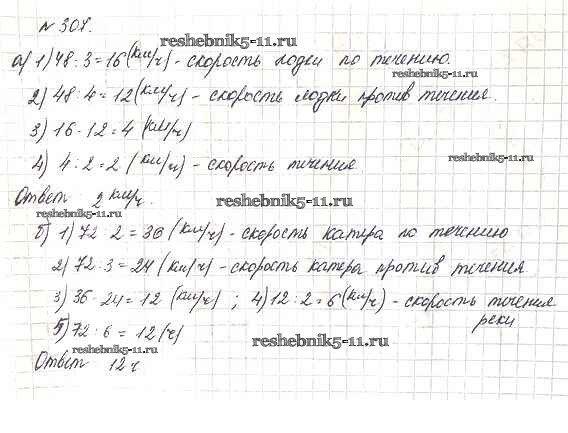 № 307.
reshebnik5-11.ru
а) 1) 48 : 3 = 16 (км/ч) - скорость лодки по течению.
reshebnik5-11.ru
2) 48 : 4 = 12 (км/ч) - скорость лодки против течения.
3) 16 - 12 = 4 (км/ч)
4) 4 : 2 = 2 (км/ч) - скорость течения
reshebnik5-11.ru
Ответ 2 км/ч.
reshebnik5-11.ru
reshebnik5-11.ru
б) 1) 72 : 2 = 36 (км/ч) - скорость катера по течению
2) 72 : 3 = 24 (км/ч) - скорость катера против течения
3) 36 - 24 = 12 (км/ч) ; 4) 12 : 2 = 6 (км/ч) - скорость течения
реки
5) 72 : 6 = 12 (ч)
reshebnik5-11.ru
reshebnik5-11.ru
Ответ 12 ч